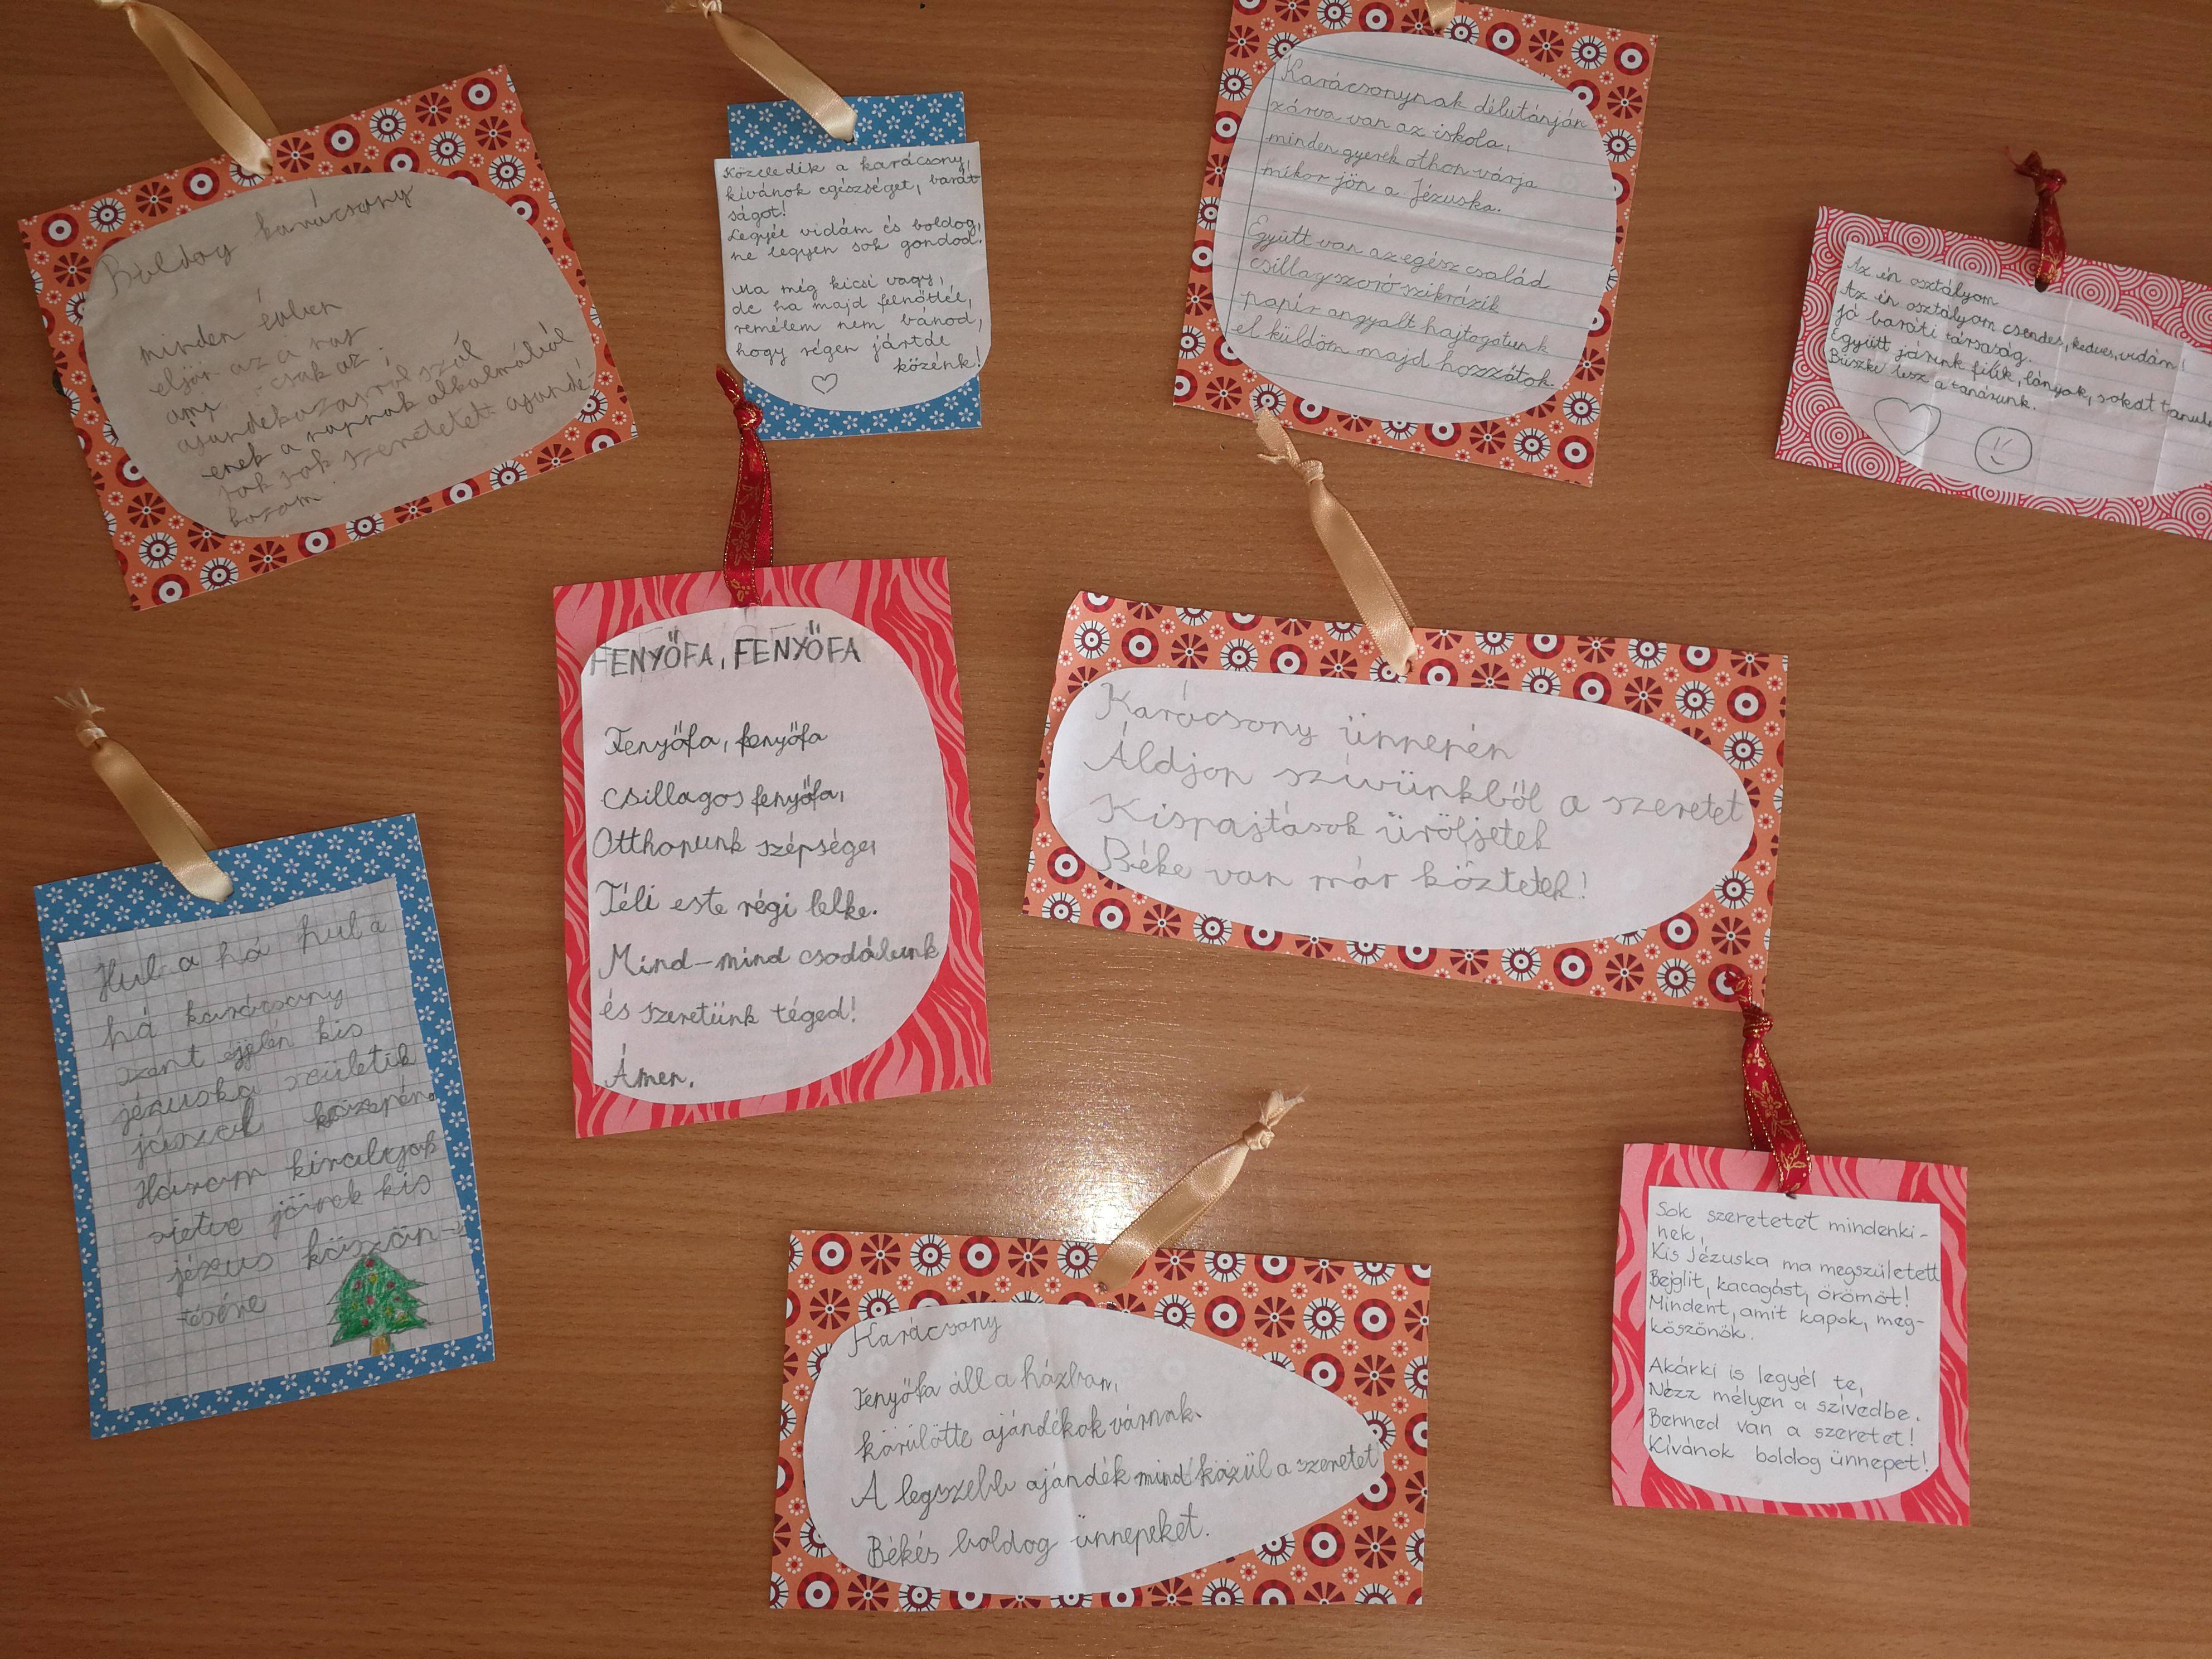 Boldog karácsony
minden évben
eljön az a nap
ami csak az
ajándékozásról szól
enek a napnak alkalmából
sok sok szeretetet ajándé-
kozom
Közeledik a karácsony,
kívánok egészséget, barát-
ságot!
Legyél vidám és boldog,
ne legyen sok gondod.
Ma még kicsi vagy,
de ha majd felnőttél,
remélem nem bánod,
hogy régen jártál
közénk!
Karácsonynak délutánján
zárva van az iskola,
minden gyerek othon várja
mikor jön a Jézuska.
Együtt van az egész család
csillagszoró szikrázik
papír angyalt hajtogatunk
el küldöm majd hozzátok.
Az én osztályom
Az én osztályom csendes, kedves, vidám!
jó baráti társaság.
Együtt járunk fiúk, lányok, sokat
Büszke lesz a tanárunk.
FENYŐFA, FENYŐFA
Fenyőfa, fenyőfa
csillagos fenyőfa,
Otthonunk szépsége,
Téli este régi lelke.
Mind-mind csodálunk
és szeretünk téged!
Ámen.
Karácsony ünnepén
Áldjon szívünkből a szeretet
Kispajtások üröljetek
Béke van már köztetek!
Hul a hó hul a
hó karácsony
szent éjjelén kis
jézuska születik
jászol közepén
Három királyok
sietve jönek kis
jézus köszön-
tésére
Karácsony
Fenyőfa áll a házban,
körülötte ajándékok várnak.
A legszebb ajándék mind közül a szeretet
Békés boldog ünnepeket.
Sok szeretetet mindenki-
nek,
Kis Jézuska ma megszületett
Bejglit, kacagást, örömöt!
Mindent, amit kapok, meg-
köszönök.
Akárki is legyél te,
Nézz mélyen a szívedbe.
Benned van a szeretet!
Kívánok boldog ünnepet!